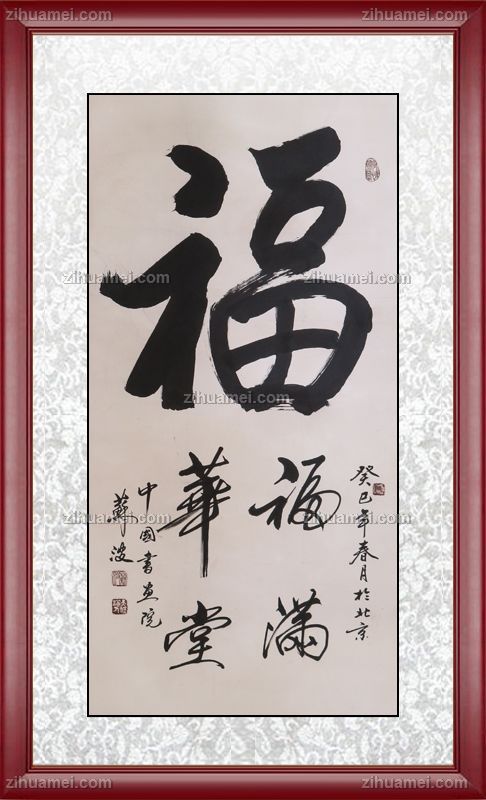 福
癸巳年春月於北京
福满
華堂
中國書画院
蘇波
zihuamei.com
zihuamei.com
zihuamei.com
zihuamei.com
zihuamei.com
zihuamei.com
zihuamei.com
zihuamei.com
zihuamei.com
zihuamei.com
zihuamei.com